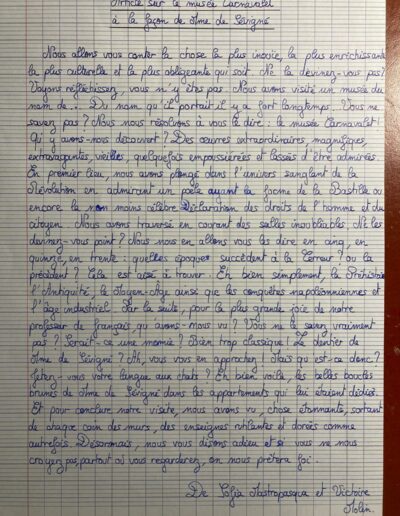 Article sur le musée Carnavalet
à la façon de Mme de Sévigné
Nous allons vous conter la chose la plus inouïe, la plus enrichissante,
la plus culturelle et la plus obligeante qui soit. Ne la devinez-vous pas?
Voyons réfléchissez, vous n'y êtes pas. Nous avons visité un musée du
nom de... Du nom qu'il portait il y a fort longtemps. Vous ne
savez pas? Nous nous résolvons à vous le dire: le musée Carnavalet!
Qu'y avons-nous découvert? Des œuvres extraordinaires, magnifiques,
extravagantes, vieilles, quelquefois empoussiérées et lassées d'être admirées.
En premier lieu, nous avons plongé dans l'univers sanglant de la
Révolution en admirant un poêle ayant la forme de la Bastille ou
encore la non moins célèbre Déclaration des droits de l'homme et du
citoyen. Nous avons traversé en courant des salles inoubliables. Ne les
devinez-vous point? Nous nous en allons vous les dire en cinq, en
quinze, en trente: quelles époques succèdent à la Terreur? ou la
précèdent? Cela est aisé à trouver. Eh bien simplement, la Préhistoire
l'Antiquité, le Moyen-Age ainsi que les conquêtes napoléoniennes et
l'âge industriel. Par la suite, pour la plus grande joie de notre
professeur de français, qu'avons-nous vu? Vous ne le savez vraiment
pas? Serait-ce une momie? Bien trop classique! Le dentier de
Mme de Sévigné? Ah, vous vous en approchez! Mais qu'est-ce donc?
Jetez-vous votre langue aux chats? Eh bien voilà, les belles boucles
brunes de Mme de Sévigné dans les appartements qui lui étaient dédiés.
Et pour conclure notre visite, nous avons vu, chose étonnante, sortant
de chaque coin des murs, des enseignes rutilantes et dorées comme
autrefois. Désormais, nous vous disons adieu et si vous ne nous
croyez pas, partout où vous regarderez, on nous prêtera foi.
De Sofia Mastropasqua et Victoire
Molin.